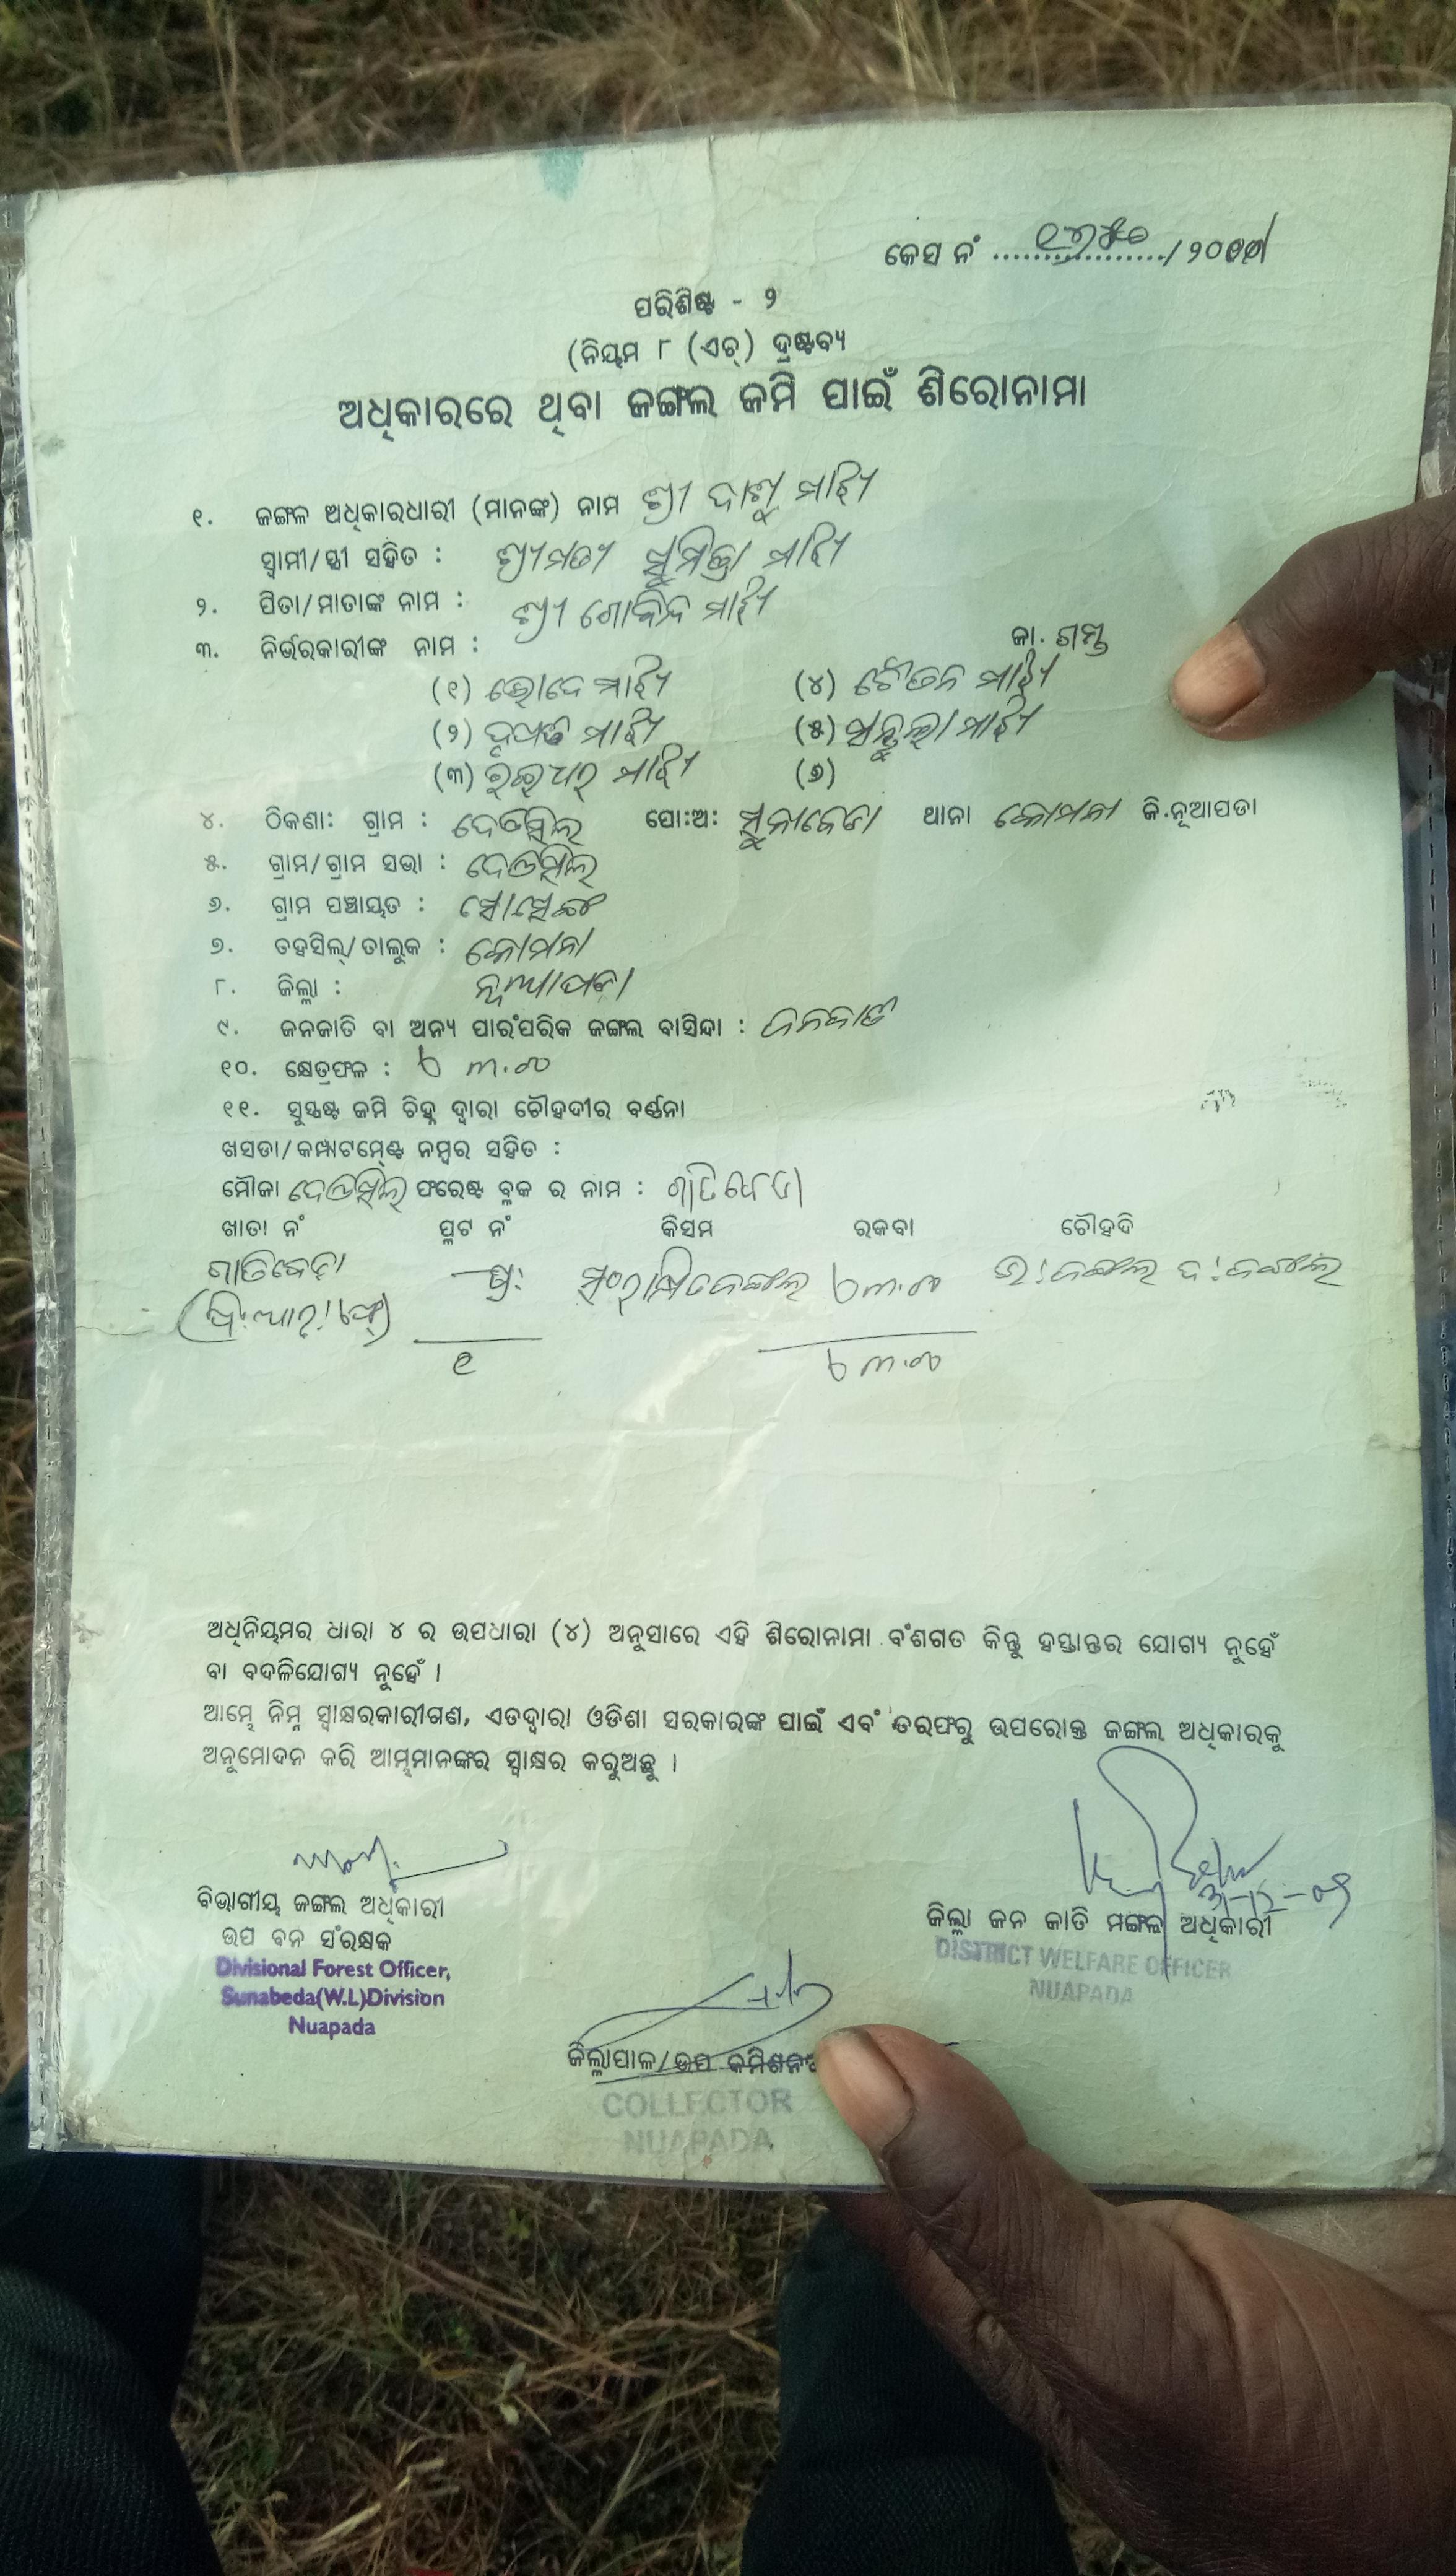 କେସ ନଂ ................../ ୨୦୧୧
ପରିଶିଷ୍ଟ - ୨
(ନିୟମ ୮ (ଏଚ୍) ଦ୍ରଷ୍ଟବ୍ୟ
ଅଧିକାରରେ ଥିବା ଜଙ୍ଗଲ ଜମି ପାଇଁ ଶିରୋନାମା
୧. ଜଙ୍ଗଳ ଅଧିକାରଧାରୀ (ମାନଙ୍କ) ନାମ ଶ୍ରୀ ଦାଶୁ ମାଝି
ସ୍ୱାମୀ/ସ୍ତ୍ରୀ ସହିତ : ଶ୍ରୀମତୀ ସୁମିତ୍ରା ମାଝି
୨. ପିତା/ମାତାଙ୍କ ନାମ : ଶ୍ରୀ ଗୋବିନ୍ଦ ମାଝି
୩. ନିର୍ଭରକାରୀଙ୍କ ନାମ : ଜା. ଗଣ୍ଡ
(୧) ଭୋଦେ ମାଝି (୪) ଚୈତନ ମାଝି
(୨) ମାଝି (୫) ମାଝି
(୩) ମାଝି (୬)
୪. ଠିକଣା: ଗ୍ରାମ : ଦେଓସିଲ ପୋ:ଅ: ସୁନାବେଡା ଥାନା କୋମନା ଜି.ନୂଆପଡା
୫. ଗ୍ରାମ/ଗ୍ରାମ ସଭା : ଦେଓସିଲ
୬. ଗ୍ରାମ ପଞ୍ଚାୟତ : ସୋସେଙ୍ଗ
୭. ତହସିଲ୍/ତାଲୁକ : କୋମନା
୮. ଜିଲ୍ଲା : ନୂଆପଡା
୯. ଜନଜାତି ବା ଅନ୍ୟ ପାରଂପରିକ ଜଙ୍ଗଲ ବାସିନ୍ଦା : ଜନଜାତି
୧୦. କ୍ଷେତ୍ରଫଳ :
୧୧. ସୁସ୍ପଷ୍ଟ ଜମି ଚିହ୍ନ ଦ୍ୱାରା ଚୌହଦୀର ବର୍ଣ୍ଣନା
ଖସଡା/କମ୍ପାଟମେଣ୍ଟ ନମ୍ବର ସହିତ :
ମୌଜା ଦେଓସିଲ ଫରେଷ୍ଟ ବ୍ଲକ ର ନାମ : ଗାତିବେଡା
ଖାତା ନଂ ପ୍ଲଟ ନଂ କିସମ ରକବା ଚୌହଦି
ଗାତିବେଡା ସଂରକ୍ଷିତ ଜଙ୍ଗଲ ଉ: ଜଙ୍ଗଲ ଦ: ଜଙ୍ଗଲ
(ପି:ଆର୍:ଫ୍)
୧
ଅଧିନିୟମର ଧାରା ୪ ର ଉପଧାରା (୪) ଅନୁସାରେ ଏହି ଶିରୋନାମା ବଂଶଗତ କିନ୍ତୁ ହସ୍ତାନ୍ତର ଯୋଗ୍ୟ ନୁହେଁ
ବା ବଦଳିଯୋଗ୍ୟ ନୁହେଁ ।
ଆମ୍ଭେ ନିମ୍ନ ସ୍ୱାକ୍ଷରକାରୀଗଣ, ଏତଦ୍ୱାରା ଓଡିଶା ସରକାରଙ୍କ ପାଇଁ ଏବଂ ତରଫରୁ ଉପରୋକ୍ତ ଜଙ୍ଗଲ ଅଧିକାରକୁ
ଅନୁମୋଦନ କରି ଆମ୍ଭମାନଙ୍କର ସ୍ୱାକ୍ଷର କରୁଅଛୁ ।
31-12-09
ବିଭାଗୀୟ ଜଙ୍ଗଲ ଅଧିକାରୀ
ଉପ ବନ ସଂରକ୍ଷକ
Divisional Forest Officer,
Sunabeda(W.L)Division
Nuapada
ଜିଲ୍ଲା ଜନ ଜାତି ମଙ୍ଗଳ ଅଧିକାରୀ
DISTRICT WELFARE OFFICER
NUAPADA
ଜିଲ୍ଲାପାଳ/ଉପ କମିଶନ
COLLECTOR
NUAPADA